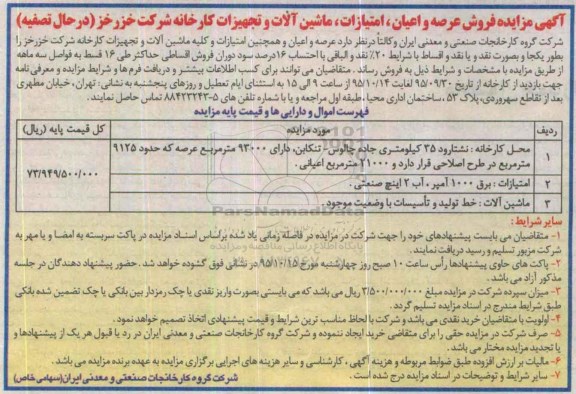 آگهی مزایده فروش عرصه و اعیان ، امتیازات ، ماشین آلات و تجهیزات کارخانه شرکت خزرخز (در حال تصفیه)
شرکت گروه کارخانجات صنعتی و معدنی ایران وکالتاً در نظر دارد عرصه و اعیان و همچنین امتیازات و کلیه ماشین آلات و تجهیزات کارخانه شرکت خزرخز را
بطور یکجا و بصورت نقد و یا نقد و اقساط با شرایط ۲۰٪ نقد و الباقی با احتساب ۱۶درصد سود دوران فروش اقساطی حداکثر طی ۱۶ قسط به فواصل سه ماهه
از طریق مزایده با مشخصات و شرایط ذیل به فروش رساند . متقاضیان می توانند برای کسب اطلاعات بیشتر و دریافت فرم ها و شرایط مزایده و معرفی نامه
جهت بازدید از کارخانه از تاریخ ۹۵/۰۹/۳۰ لغایت ۹۵/۱۰/۱۴ از ساعت ۹ الی ۱۵ به استثنای ایام تعطیل و روزهای پنجشنبه به نشانی : تهران ، خیابان مطهری
بعد از تقاطع سهروردی، پلاک ۵۳ ، ساختمان اداری محیا ،طبقه اول مراجعه و یا با شماره تلفن های ۵-۸۸۴۲۳۲۴۳ تماس حاصل نمایند.
فهرست اموال و دارایی ها و قیمت پایه مزایده
ردیف مورد مزایده کل قیمت پایه (ریال)
۱ محل کارخانه : نشتارود ۳۵ کیلومتری جاده چالوس- تنکابن، دارای ۹۳۰۰۰ مترمربع عرصه که حدود ۹۱۲۵
مترمربع در طرح اصلاحی قرار دارد و ۲۱۰۰۰ مترمربع اعیانی. ۷۳/۹۴۹/۵۰۰/۰۰۰
۲ امتیازات : برق ۱۰۰۰ آمپر ، آب ۲ اینچ صنعتی .
۳ ماشین آلات : خط تولید و تأسیسات با وضعیت موجود .
ParsNamadData
سایر شرایط :
۱- متقاضیان می بایست پیشنهادهای خود را جهت شرکت در مزایده در فاصله زمانی یاد شده براساس اسناد مزایده در پاکت سربسته به امضا و یا مهر به
شرکت مزبور تسلیم و رسید دریافت نمایند.
۲- پاکت های حاوی پیشنهادها رأس ساعت ۱۰ صبح روز چهارشنبه مورخ ۹۵/۱۰/۱۵ در نشانی فوق گشوده خواهد شد .حضور پیشنهاد دهندگان در جلسه
مذکور آزاد می باشد .
۳- میزان سپرده شرکت در مزایده مبلغ ۳/۵۰۰/۰۰۰/۰۰۰ ریال می باشد که می بایستی بصورت واریز نقدی یا چک رمزدار بین بانکی یا چک تضمین شده بانکی
طبق شرایط مندرج در اسناد مزایده تسلیم گردد .
۴- اولویت با متقاضیان خرید نقدی می باشد و شرکت با لحاظ مناسب ترین شرایط و قیمت پیشنهادی اتخاذ تصمیم خواهد نمود .
۵- صرف شرکت در مزایده حقی را برای متقاضی خرید ایجاد ننموده و شرکت گروه کارخانجات صنعتی و معدنی ایران در رد یا قبول هر یک از پیشنهادها و
یا تجدید مزایده مختار می باشد .
۶- مالیات بر ارزش افزوده طبق ضوابط مربوطه و هزینه آگهی ، کارشناسی و سایر هزینه های اجرایی برگزاری مزایده به عهده برنده مزایده می باشد .
۷- سایر شرایط و توضیحات در اسناد مزایده درج شده است .
شرکت گروه کارخانجات صنعتی و معدنی ایران(سهامی خاص)